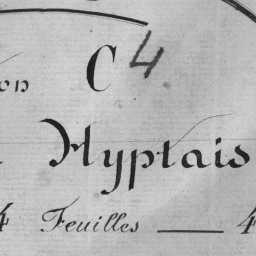 on C4
Hyptais
4 Feuilles — 4